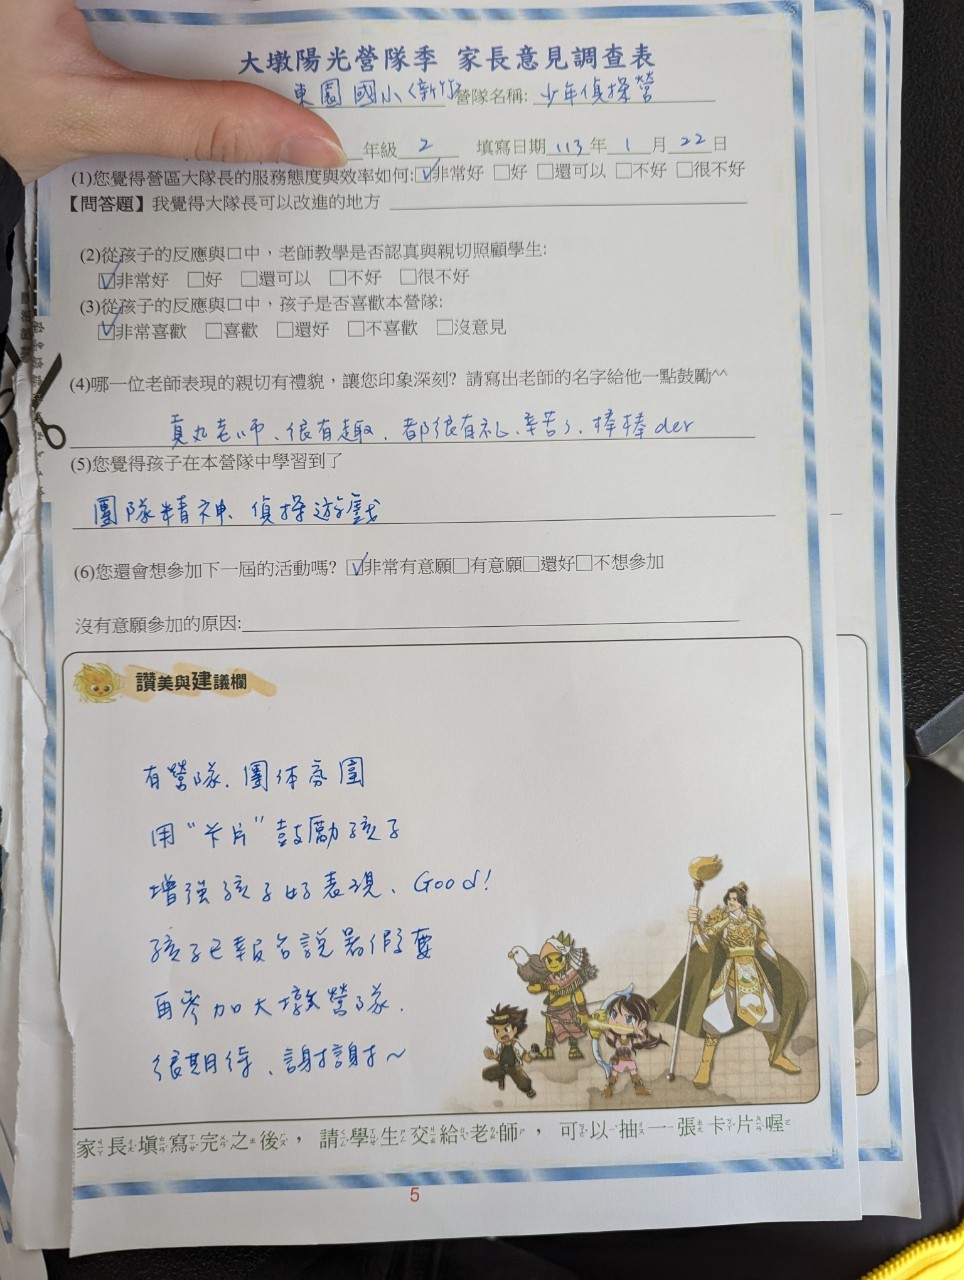 大墩陽光營隊季 家長意見調查表
東園國小(新竹 營隊名稱: 少年偵探營
年級 2 填寫日期 113 年 1 月 22 日
(1)您覺得營區大隊長的服務態度與效率如何:☑非常好 □好 □還可以 □不好 □很不好
【問答題】我覺得大隊長可以改進的地方
(2)從孩子的反應與口中，老師教學是否認真與親切照顧學生:
☑非常好 □好 □還可以 □不好 □很不好
(3)從孩子的反應與口中，孩子是否喜歡本營隊:
☑非常喜歡 □喜歡 □還好 □不喜歡 □沒意見
(4)哪一位老師表現的親切有禮貌，讓您印象深刻? 請寫出老師的名字給他一點鼓勵^^
真丸老师、很有趣、都很有礼、辛苦了、棒棒der
(5)您覺得孩子在本營隊中學習到了
團隊精神、偵探遊戲
(6)您還會想參加下一屆的活動嗎? ☑非常有意願□有意願□還好□不想參加
沒有意願參加的原因:
讚美與建議欄
有營隊、團体氛圍
用"卡片"鼓勵孩子
增強孩子好表現、Good!
孩子已報告說暑假要
再參加大墩營隊.
很期待、謝謝~
家長填寫完之後，請學生交給老師，可以抽一張卡片喔
5